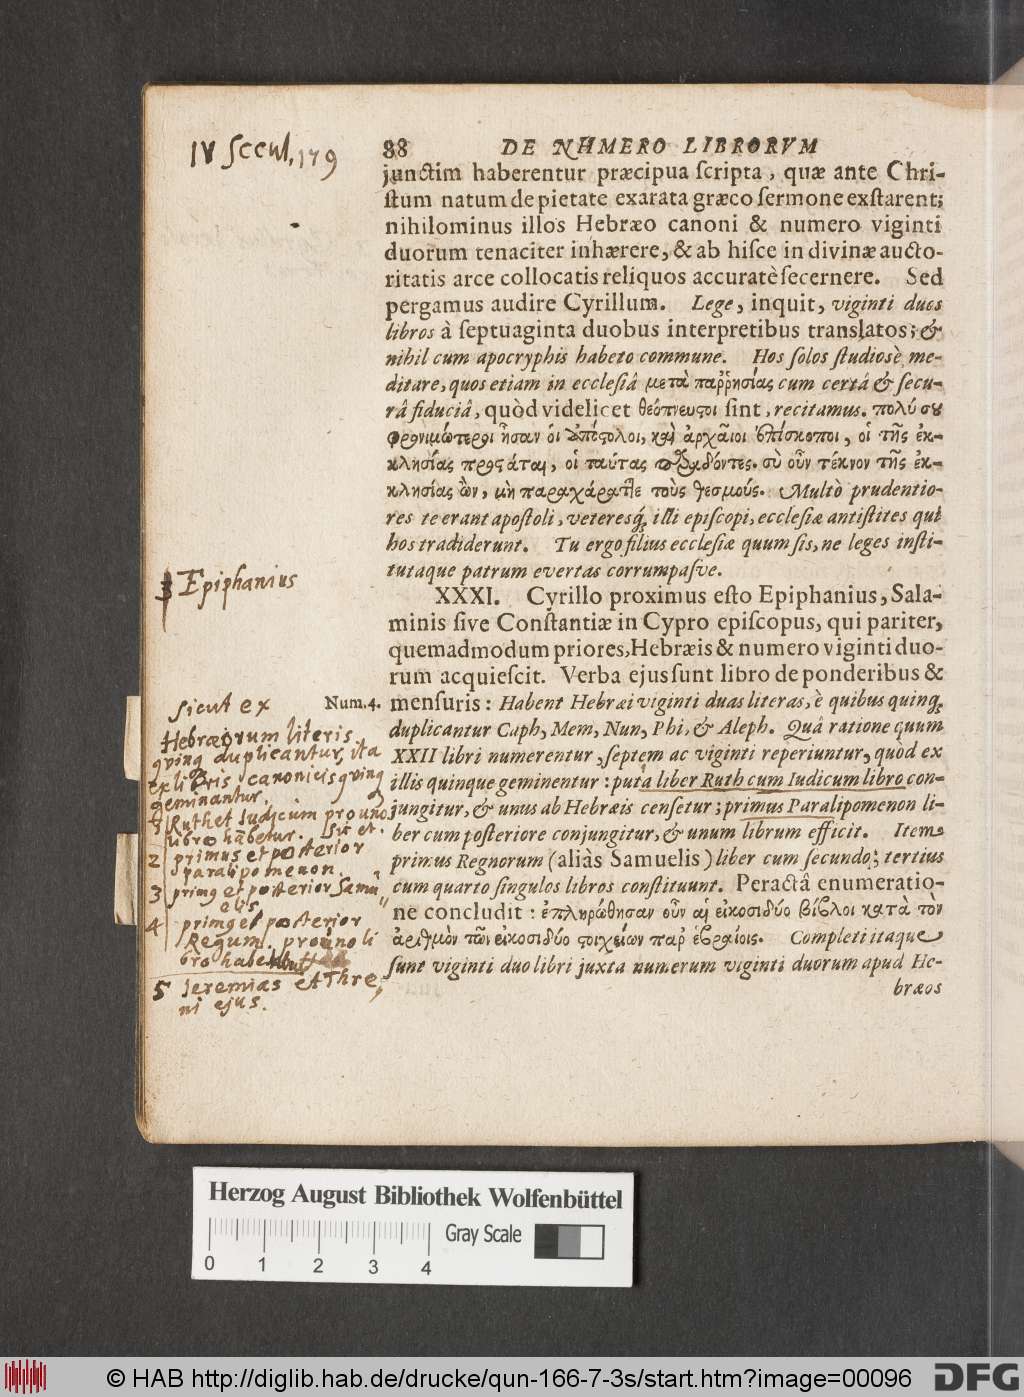 IV Secul. 179
88 DE NUMERO LIBRORVM
junctim haberentur præcipua ſcripta, quæ ante Chri-
ſtum natum de pietate exarata græco ſermone exſtarent;
nihilominus illos Hebræo canoni & numero viginti
duorum tenaciter inhærere, & ab hiſce in divinæ aucto-
ritatis arce collocatis reliquos accuratè ſecernere. Sed
pergamus audire Cyrillum. Lege, inquit, viginti duos
libros à ſeptuaginta duobus interpretibus translatos; &
nihil cum apocryphis habeto commune. Hos ſolos ſtudiosè me-
ditare, quos etiam in eccleſiâ μετὰ παῤῥησίας cum certâ & ſecu-
râ fiduciâ, quòd videlicet θεόπνευϛοι ſint, recitamus. πολύ σου
φρονιμώτεροι ἦσαν οἱ ἀπόϛολοι, καὶ ἀρχαῖοι ἐπίσκοποι, οἱ τῆς ἐκ-
κλησίας προϛάται, οἱ ταύτας παραδόντες. σὺ οὖν τέκνον τῆς ἐκ-
κλησίας ὢν, μὴ παραχάραττε τοὺς θεσμούς. Multò prudentio-
res te erant apoſtoli, veteresq́; illi epiſcopi, eccleſiæ antiſtites qui
hos tradiderunt. Tu ergo filius eccleſiæ quum ſis, ne leges inſti-
tutaque patrum evertas corrumpaſve.
3 Epiphanius
XXXI. Cyrillo proximus eſto Epiphanius, Sala-
minis ſive Conſtantiæ in Cypro epiſcopus, qui pariter,
quemadmodum priores, Hebræis & numero viginti duo-
rum acquieſcit. Verba ejus ſunt libro de ponderibus &
Num. 4. menſuris: Habent Hebræi viginti duas literas, è quibus quinq;
duplicantur Caph, Mem, Nun, Phi, & Aleph. Quâ ratione quum
XXII libri numerentur, ſeptem ac viginti reperiuntur, quòd ex
illis quinque geminentur: puta liber Ruth cum Iudicum libro con-
jungitur, & unus ab Hebræis cenſetur; primus Paralipomenon li-
ber cum poſteriore conjungitur, & unum librum efficit. Item
primus Regnorum (aliàs Samuelis) liber cum ſecundo; tertius
cum quarto ſingulos libros conſtituunt. Peractâ enumeratio-
ne concludit: ἐπληρώθησαν οὖν αἱ εἰκοσιδύο βίβλοι κατὰ τὸν
ἀριθμὸν τῶν εἰκοσιδύο ϛοιχείων παρ ἑβραίοις. Completi itaque
ſunt viginti duo libri juxta numerum viginti duorum apud He-
bræos
sicut ex
Hebræorum literis
qving duplicantur, ita
ex libris canonicis qving
geminantur.
1 Ruth et Judicum pro uno
libro habetur. Sic et.
2 primus et posterior
paralipomenon.
3 primg et posterior Samu
elis
4 primg et posterior
Regum. pro uno li
bro habe
5 Jeremias et Thre
ni ejus.
Herzog August Bibliothek Wolfenbüttel
Gray Scale
0 1 2 3 4
© HAB http://diglib.hab.de/drucke/qun-166-7-3s/start.htm?image=00096
DFG